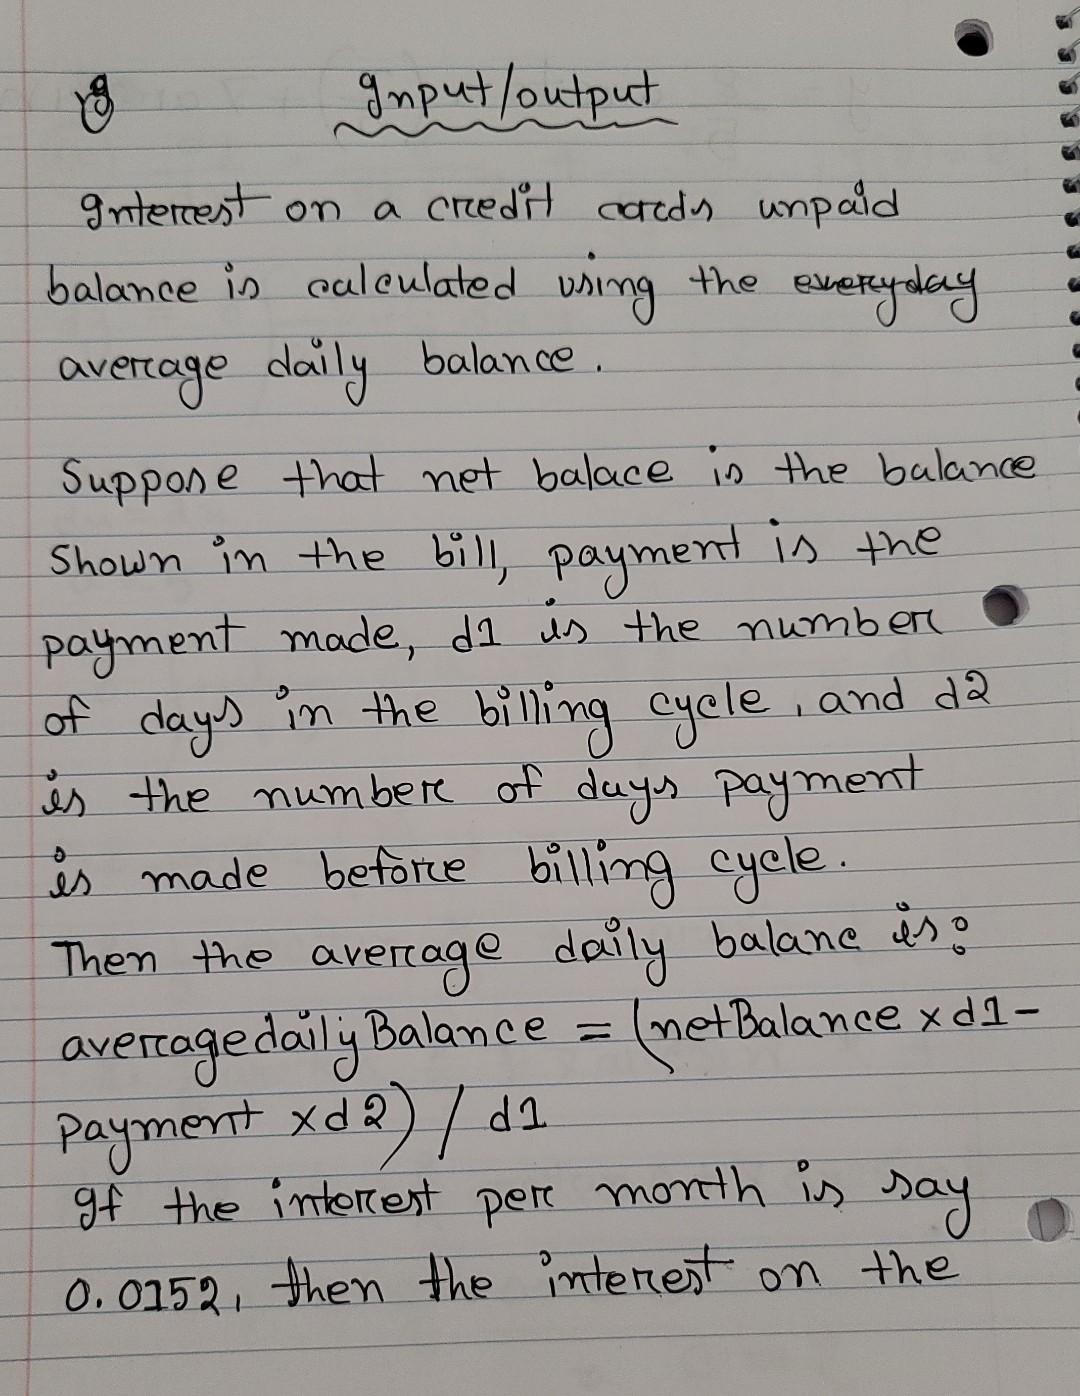 Input/output
Interest on a credit cards unpaid
balance is calculated using the everyday
average daily balance.
Suppose that net balace is the balance
Shown in the bill, payment is the
payment made, d1 is the number
of days in the billing cycle, and d2
is the number of days payment
is made before billing cycle.
Then the average daily balanc is:
averagedailyBalance = (netBalance x d1 -
payment x d2) / d1
If the interest per month is say
0.0152, then the interest on the